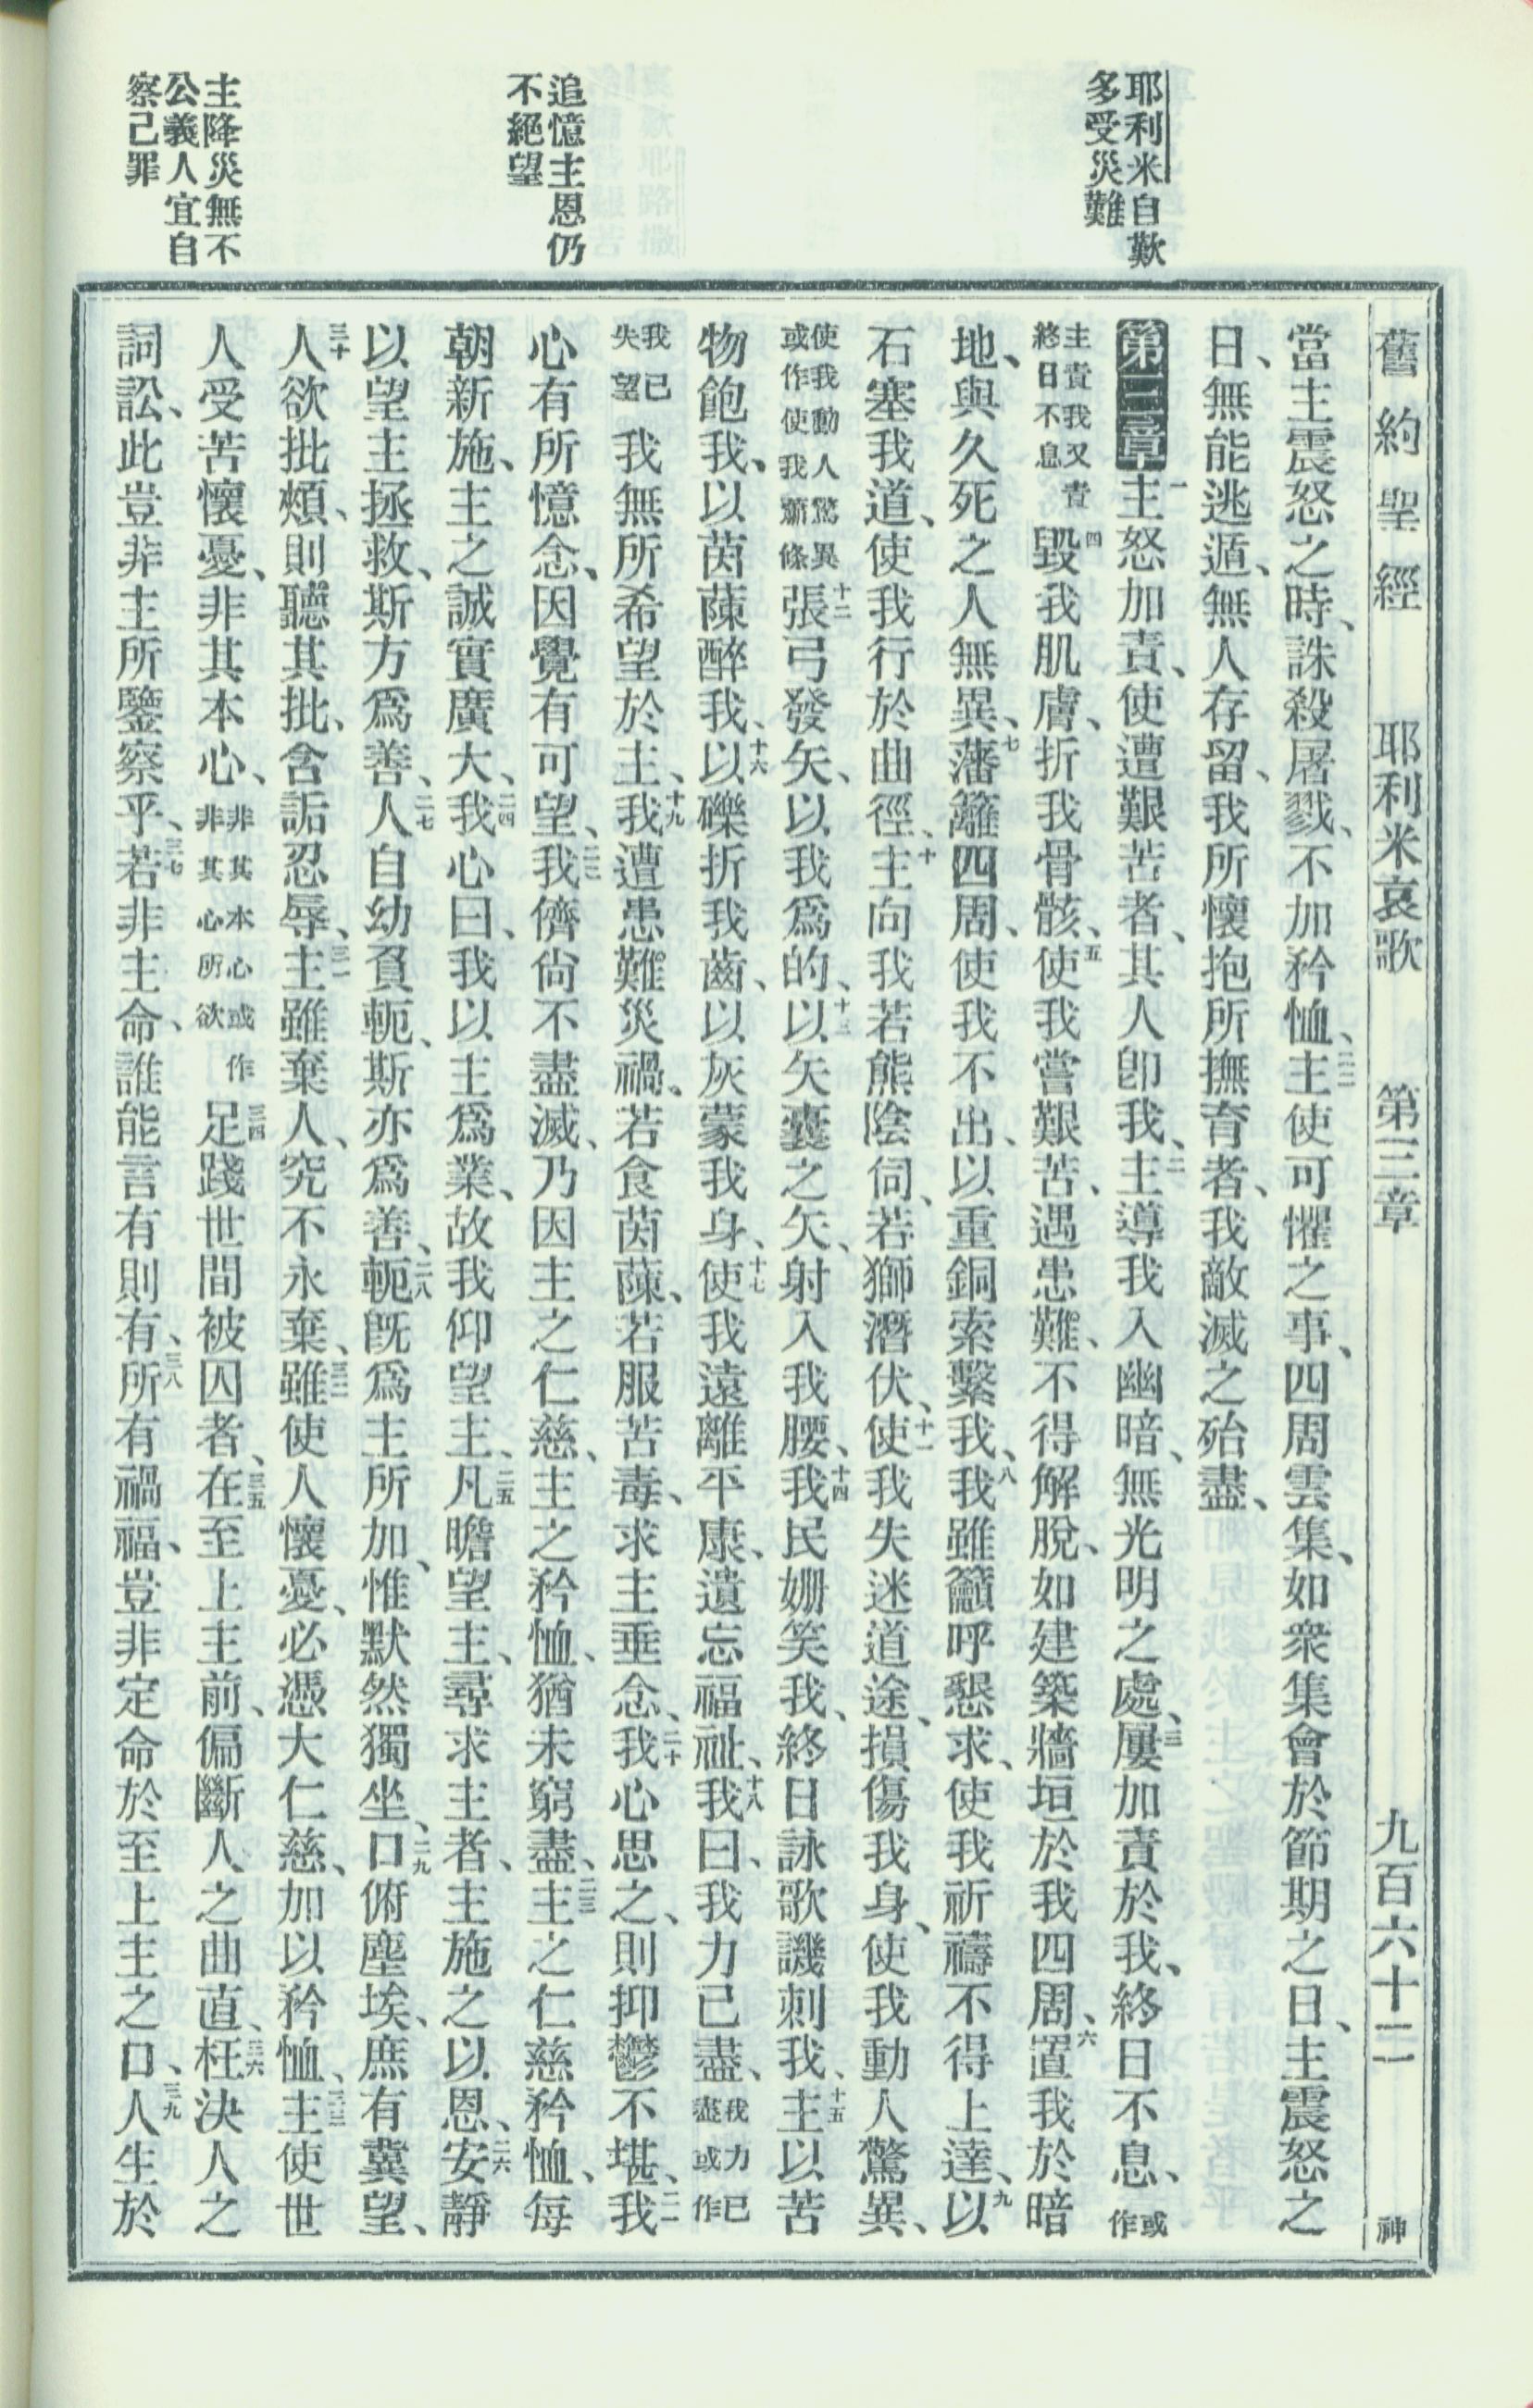 舊約聖經　耶利米哀歌　第三章　九百六十二　神
耶利米自歎
多受災難
追憶主恩仍
不絕望
主降災無不
公義人宜自
察己罪
當主震怒之時、誅殺屠戮、不加矜恤、二二主使可懼之事、四周雲集、如衆集會於節期之日、主震怒之
日、無能逃遁、無人存留、我所懷抱所撫育者、我敵滅之殆盡、
第三章一主怒加責、使遭艱苦者、其人卽我、二主導我入幽暗、無光明之處、三屢加責於我、終日不息、或作
主責我又責終日不息四毀我肌膚、折我骨骸、五使我嘗艱苦、遇患難、不得解脫、如建築牆垣於我四周、六置我於暗
地、與久死之人無異、七藩籬四周、使我不出、以重銅索繫我、八我雖籲呼懇求、使我祈禱不得上達、九以
石塞我道、使我行於曲徑、十主向我若熊陰伺、若獅潛伏、十一使我失迷道途、損傷我身、使我動人驚異、
使我動人驚異或作使我蕭條十二張弓發矢、以我爲的、十三以矢囊之矢、射入我腰、十四我民姍笑我、終日詠歌譏刺我、十五主以苦
物飽我、以茵蔯醉我、十六以礫折我齒、以灰蒙我身、十七使我遠離平康、遺忘福祉、十八我曰、我力已盡、我力已盡或作
我已失望我無所希望於主、十九我遭患難災禍、若食茵蔯、若服苦毒、求主垂念、二十我心思之、則抑鬱不堪、二一我
心有所憶念、因覺有可望、二二我儕尙不盡滅、乃因主之仁慈、主之矜恤、猶未窮盡、二三主之仁慈矜恤、每
朝新施、主之誠實廣大、二四我心曰、我以主爲業、故我仰望主、二五凡瞻望主、尋求主者、主施之以恩、二六安靜
以望主拯救、斯方爲善、二七人自幼負軛、斯亦爲善、二八軛旣爲主所加、惟默然獨坐、二九口俯塵埃、庶有冀望、
三十人欲批頰、則聽其批、含詬忍辱、三一主雖棄人、究不永棄、三二雖使人懷憂、必憑大仁慈、加以矜恤、三三主使世
人受苦懷憂、非其本心、非其本心或作非其心所欲三四足踐世間被囚者、三五在至上主前、偏斷人之曲直、三六枉決人之
詞訟、此豈非主所鑒察乎、三七若非主命、誰能言有則有、三八所有禍福、豈非定命於至上主之口、三九人生於